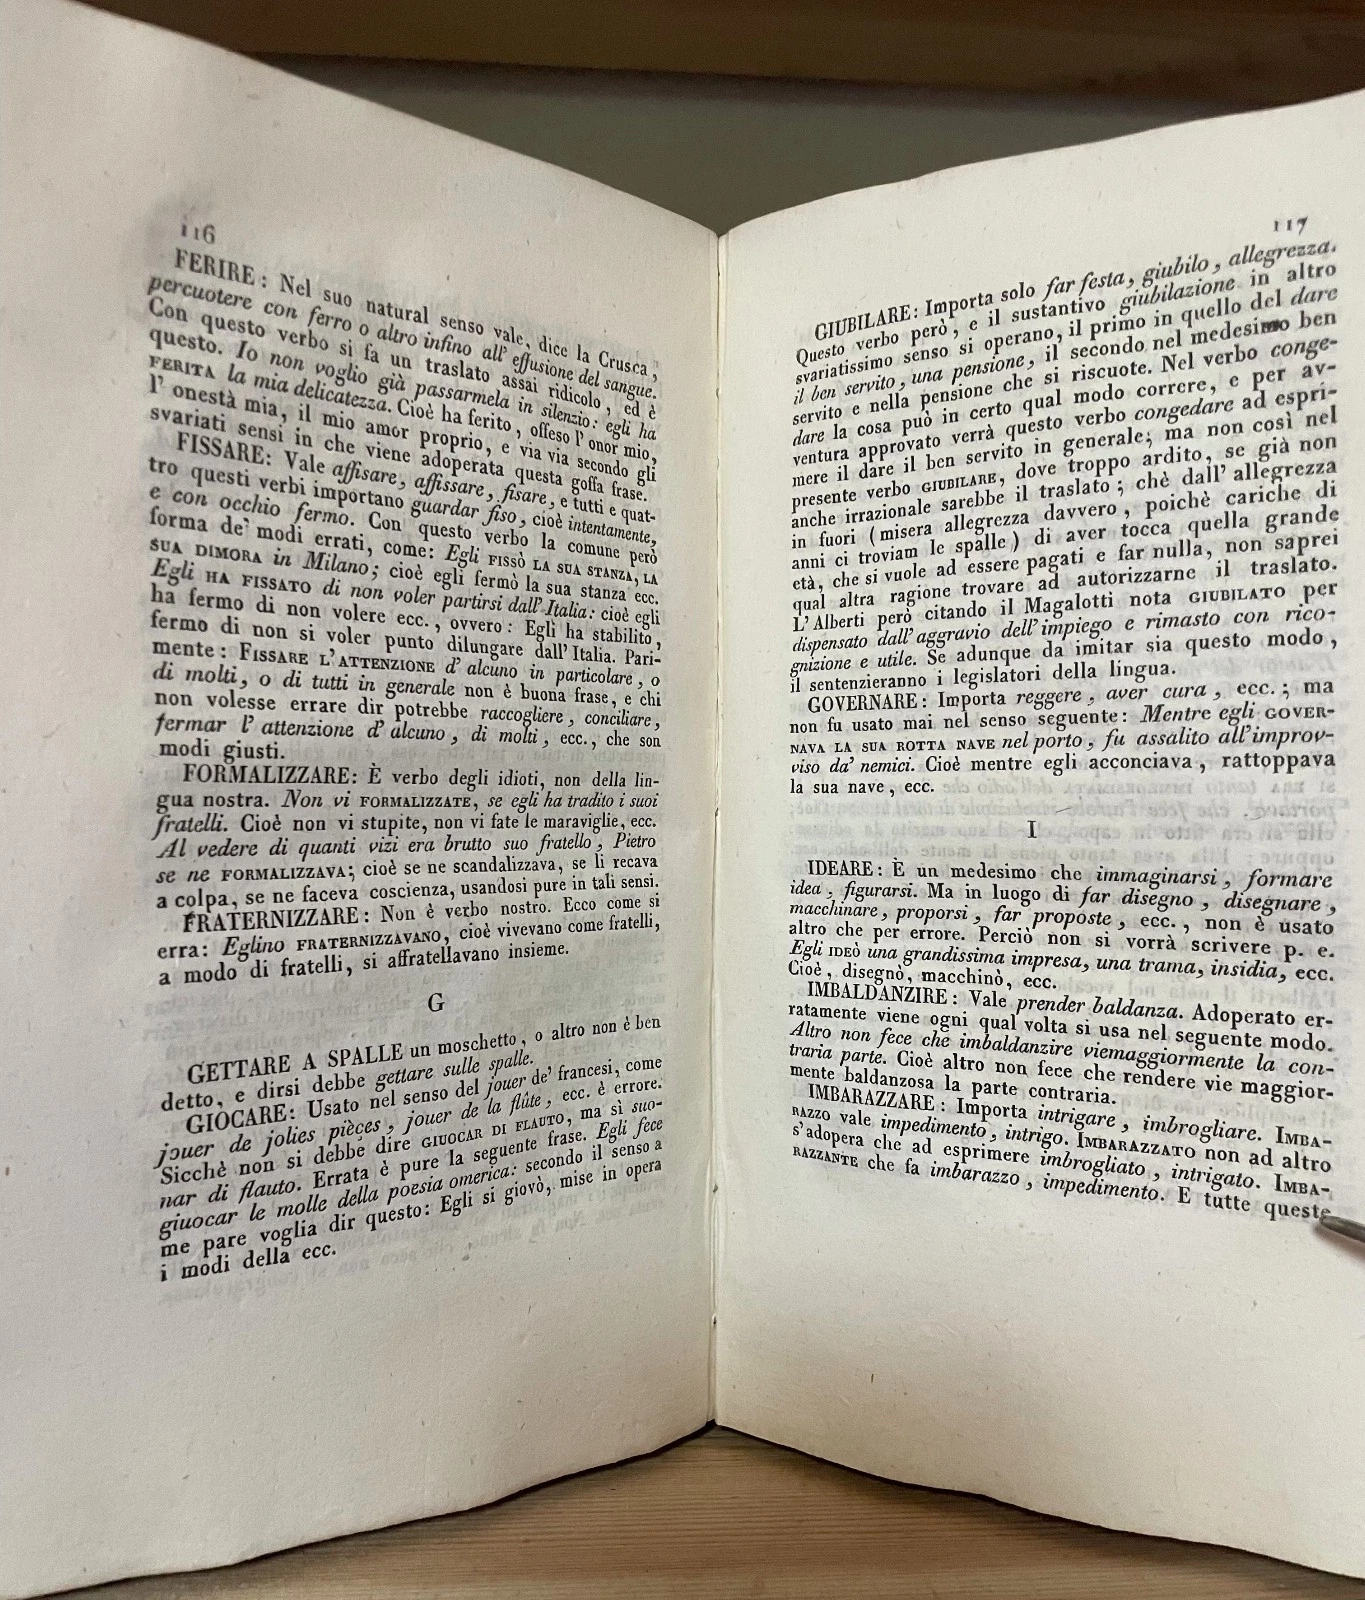 116
FERIRE: Nel suo natural senso vale, dice la Crusca,
percuotere con ferro o altro infino all' effusione del sangue.
Con questo verbo si fa un traslato assai ridicolo, ed è
questo. Io non voglio già passarmela in silenzio: egli ha
FERITA la mia delicatezza. Cioè ha ferito, offeso l'onor mio,
l'onestà mia, il mio amor proprio, e via via secondo gli
svariati sensi in che viene adoperata questa goffa frase.
FISSARE: Vale affisare, affissare, fisare, e tutti e quat-
tro questi verbi importano guardar fiso, cioè intentamente,
e con occhio fermo. Con questo verbo la comune però
forma de' modi errati, come: Egli FISSÒ LA SUA STANZA, LA
SUA DIMORA in Milano; cioè egli fermò la sua stanza ecc.
Egli HA FISSATO di non voler partirsi dall'Italia: cioè egli
ha fermo di non volere ecc., ovvero: Egli ha stabilito,
fermo di non si voler punto dilungare dall'Italia. Pari-
mente: FISSARE L'ATTENZIONE d'alcuno in particolare, o
di molti, o di tutti in generale non è buona frase, e chi
non volesse errare dir potrebbe raccogliere, conciliare,
fermar l'attenzione d'alcuno, di molti, ecc., che son
modi giusti.
FORMALIZZARE: È verbo degli idioti, non della lin-
gua nostra. Non vi FORMALIZZATE, se egli ha tradito i suoi
fratelli. Cioè non vi stupite, non vi fate le maraviglie, ecc.
Al vedere di quanti vizi era brutto suo fratello, Pietro
se ne FORMALIZZAVA; cioè se ne scandalizzava, se li recava
a colpa, se ne faceva coscienza, usandosi pure in tali sensi.
FRATERNIZZARE: Non è verbo nostro. Ecco come si
erra: Eglino FRATERNIZZAVANO, cioè vivevano come fratelli,
a modo di fratelli, si affratellavano insieme.
G
GETTARE A SPALLE un moschetto, o altro non è ben
detto, e dirsi debbe gettare sulle spalle.
GIOCARE: Usato nel senso del jouer de' francesi, come
jouer de jolies pièces, jouer de la flûte, ecc. è errore.
Sicchè non si debbe dire GIUOCAR DI FLAUTO, ma sì suo-
nar di flauto. Errata è pure la seguente frase. Egli fece
giuocar le molle della poesia omerica: secondo il senso a
me pare voglia dir questo: Egli si giovò, mise in opera
i modi della ecc.
117
GIUBILARE: Importa solo far festa, giubilo, allegrezza.
Questo verbo però, e il sustantivo giubilazione in altro
svariatissimo senso si operano, il primo in quello del dare
il ben servito, una pensione, il secondo nel medesimo ben
servito e nella pensione che si riscuote. Nel verbo conge-
dare la cosa può in certo qual modo correre, e per av-
ventura approvato verrà questo verbo congedare ad espri-
mere il dare il ben servito in generale; ma non così nel
presente verbo GIUBILARE, dove troppo ardito, se già non
anche irrazionale sarebbe il traslato; chè dall'allegrezza
in fuori (misera allegrezza davvero, poichè cariche di
anni ci troviam le spalle) di aver tocca quella grande
età, che si vuole ad essere pagati e far nulla, non saprei
qual altra ragione trovare ad autorizzarne il traslato.
L'Alberti però citando il Magalotti nota GIUBILATO per
dispensato dall'aggravio dell'impiego e rimasto con rico-
gnizione e utile. Se adunque da imitar sia questo modo,
il sentenzieranno i legislatori della lingua.
GOVERNARE: Importa reggere, aver cura, ecc.; ma
non fu usato mai nel senso seguente: Mentre egli GOVER-
NAVA LA SUA ROTTA NAVE nel porto, fu assalito all'improv-
viso da' nemici. Cioè mentre egli acconciava, rattoppava
la sua nave, ecc.
I
IDEARE: È un medesimo che immaginarsi, formare
idea, figurarsi. Ma in luogo di far disegno, disegnare,
macchinare, proporsi, far proposte, ecc., non è usato
altro che per errore. Perciò non si vorrà scrivere p. e.
Egli IDEÒ una grandissima impresa, una trama, insidia, ecc.
Cioè, disegnò, macchinò, ecc.
IMBALDANZIRE: Vale prender baldanza. Adoperato er-
ratamente viene ogni qual volta si usa nel seguente modo.
Altro non fece che imbaldanzire viemaggiormente la con-
traria parte. Cioè altro non fece che rendere vie maggior-
mente baldanzosa la parte contraria.
IMBARAZZARE: Importa intrigare, imbrogliare. IMBA-
RAZZO vale impedimento, intrigo. IMBARAZZATO non ad altro
s'adopera che ad esprimere imbrogliato, intrigato. IMBA-
RAZZANTE che fa imbarazzo, impedimento. E tutte queste